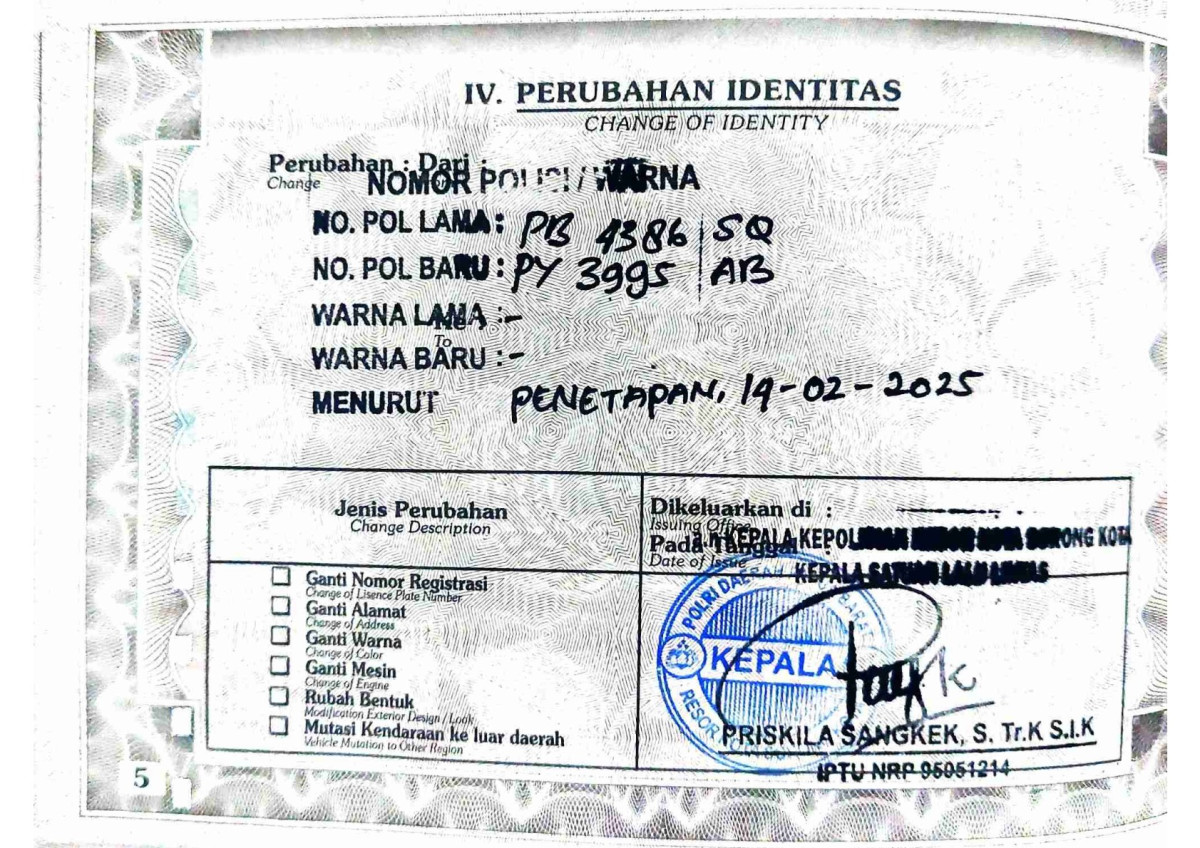 IV. PERUBAHAN IDENTITAS
CHANGE OF IDENTITY
Perubahan : Dari :
Change
NOMOR POLISI / WARNA
NO. POL LAMA : PB 4386 SQ
NO. POL BARU : PY 3995 AB
WARNA LAMA : -
To
WARNA BARU : -
MENURUT PENETAPAN, 19-02-2025
Jenis Perubahan
Change Description
Dikeluarkan di :
Issuing Office
KEPALA KEPOLISIAN SORONG KOTA
Pada Tanggal :
Date of Issue
KEPALA SATUAN LALU LINTAS
Ganti Nomor Registrasi
Change of Lisence Plate Number
Ganti Alamat
Change of Address
Ganti Warna
Change of Color
Ganti Mesin
Change of Engine
Rubah Bentuk
Modification Exterior Design / Look
Mutasi Kendaraan ke luar daerah
Vehicle Mutation to Other Region
POLRI DAERAH BARAT
KEPALA
RESOR
PRISKILA SANGKEK, S. Tr.K S.I.K
IPTU NRP 95051214
5